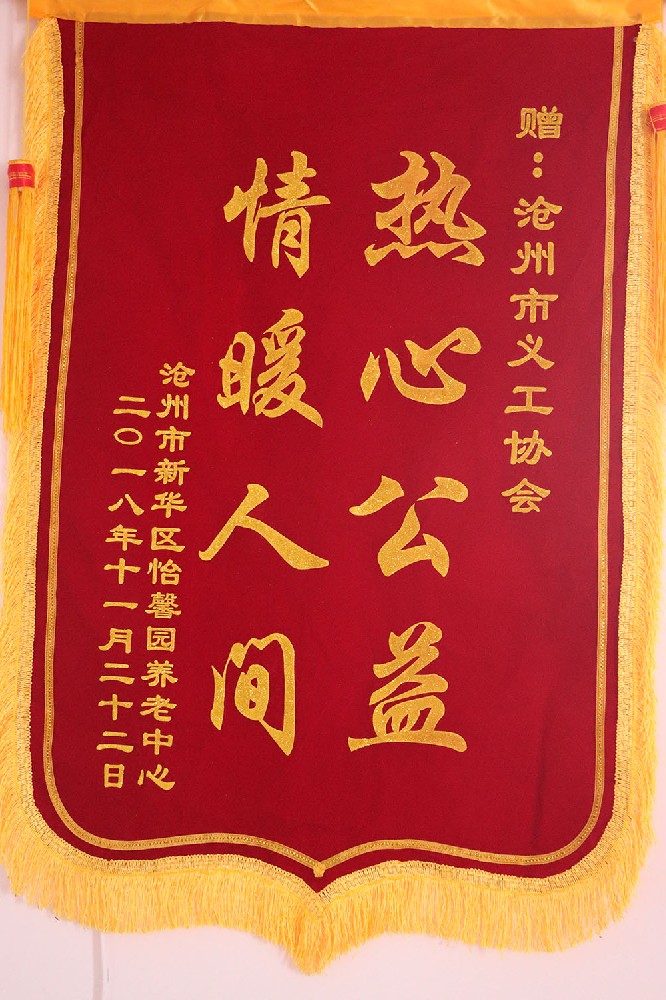 赠：沧州市义工协会
热心公益
情暖人间
沧州市新华区怡馨园养老中心
二〇一八年十一月二十二日